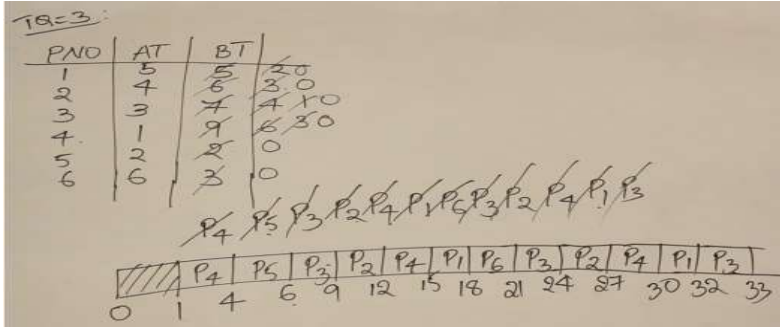 TQ=3:
PNO AT BT
1 5 5 2 0
2 4 6 3 0
3 3 7 4 1 0
4. 1 9 6 3 0
5 2 2 0
6 6 3 0
P4 P5 P3 P2 P4 P1 P6 P3 P2 P4 P1 P3
P4 P5 P3 P2 P4 P1 P6 P3 P2 P4 P1 P3
0 1 4 6 9 12 15 18 21 24 27 30 32 33